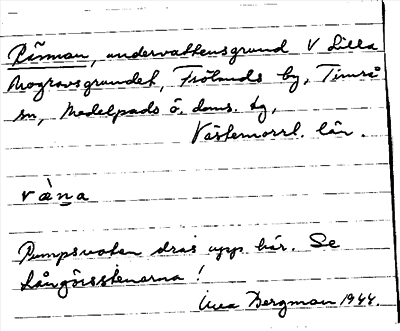 undervattensgrund V Lilla
Mogravsgrundet, Frölands by, Timrå
sn, Medelpads ö. doms. tg,
Västernorrl. län.
Pumpsvoten dras upp här. Se
Långörsstenarna!
Bergman 1944.